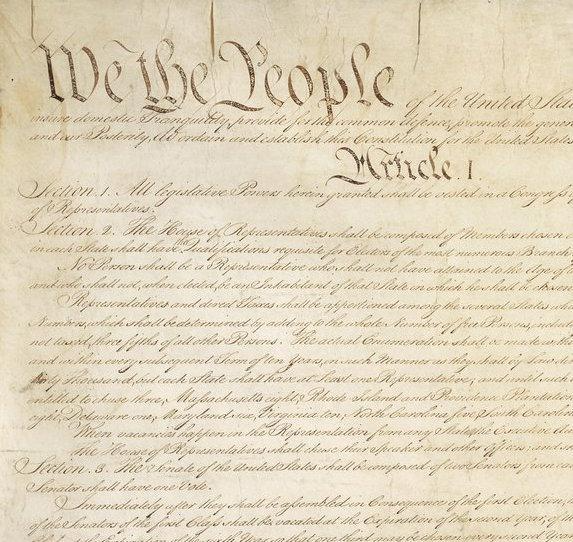 We the People of the United States
insure domestic Tranquility, provide for the common defence, promote the gener
and our Posterity, do ordain and establish this Constitution for the United States
Article. I.
Section. 1. All legislative Powers herein granted shall be vested in a Congress
of Representatives.
Section. 2. The House of Representatives shall be composed of Members chosen
in each State shall have the Qualifications requisite for Electors of the most numerous Branch
No Person shall be a Representative who shall not have attained to the Age of
and who shall not, when elected, be an Inhabitant of that State in which he shall be chosen
Representatives and direct Taxes shall be apportioned among the several States
Numbers, which shall be determined by adding to the whole Number of free Persons, includ
not taxed, three fifths of all other Persons. The actual Enumeration shall be made
and within every subsequent Term of ten Years, in such Manner as they shall by Law
thirty Thousand, but each State shall have at Least one Representative; and until such
entitled to chuse three, Massachusetts eight, Rhode Island and Providence Plantation
eight, Delaware one, Maryland six, Virginia ten, North Carolina five, South Carolina
When vacancies happen in the Representation from any State, the Executive
The House of Representatives shall chuse their Speaker and other Officers; and
Section. 3. The Senate of the United States shall be composed of two Senators from
Senator shall have one Vote.
Immediately after they shall be assembled in Consequence of the first Election,
of the Senators of the first Class shall be vacated at the Expiration of the second Year, of
Expiration of the sixth Year, so that one third may be chosen every second Year